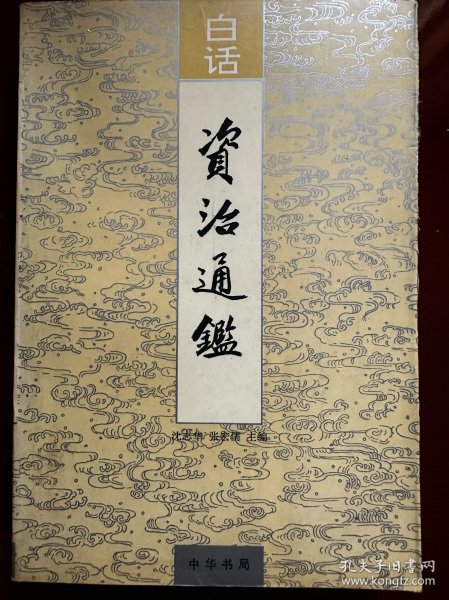 白话
資治通鑑
沈志华 张宏儒 主编
中华书局
孔夫子旧书网
www.kongfz.com